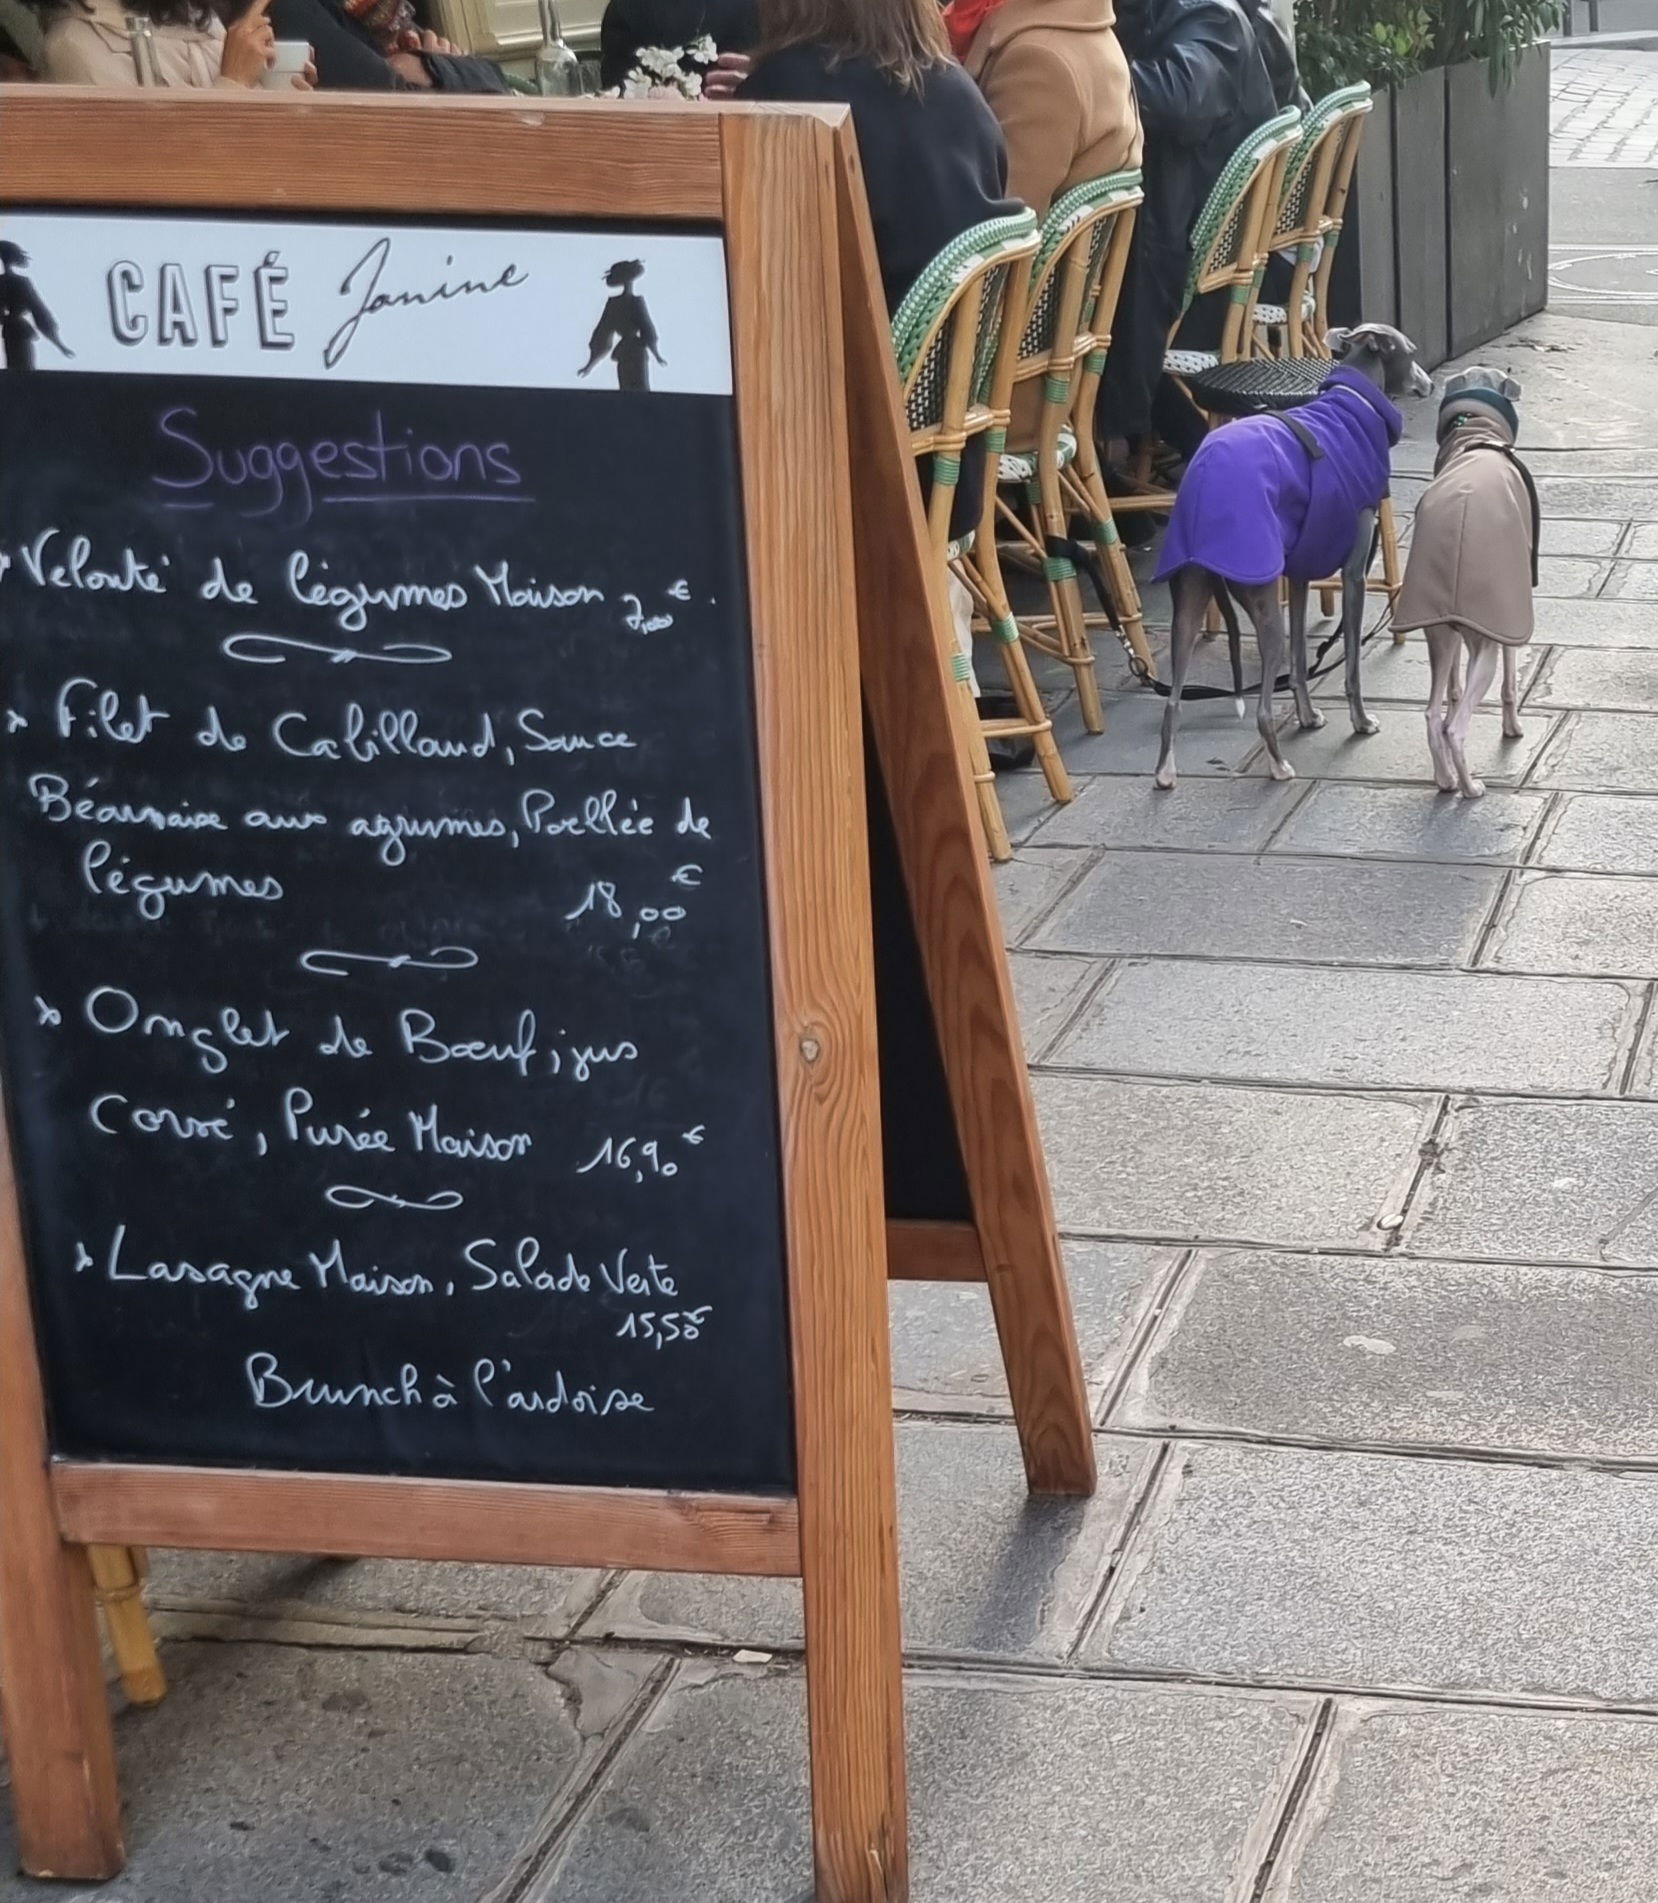 CAFÉ Janine
Suggestions
Velouté de légumes Maison 7,00 €.
Filet de Cabillaud, Sauce
Béarnaise aux agrumes, Poellée de
légumes 18,00 €
Onglet de Bœuf, jus
Corsé, Purée Maison 16,90 €
Lasagne Maison, Salade Verte
15,50 €
Brunch à l'ardoise